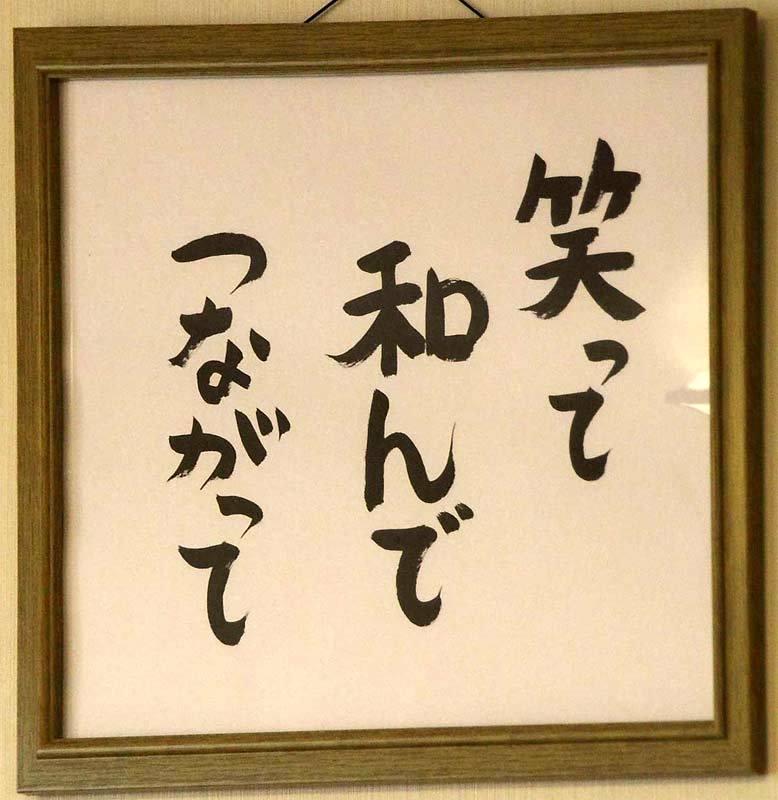 笑って
和んで
つながって